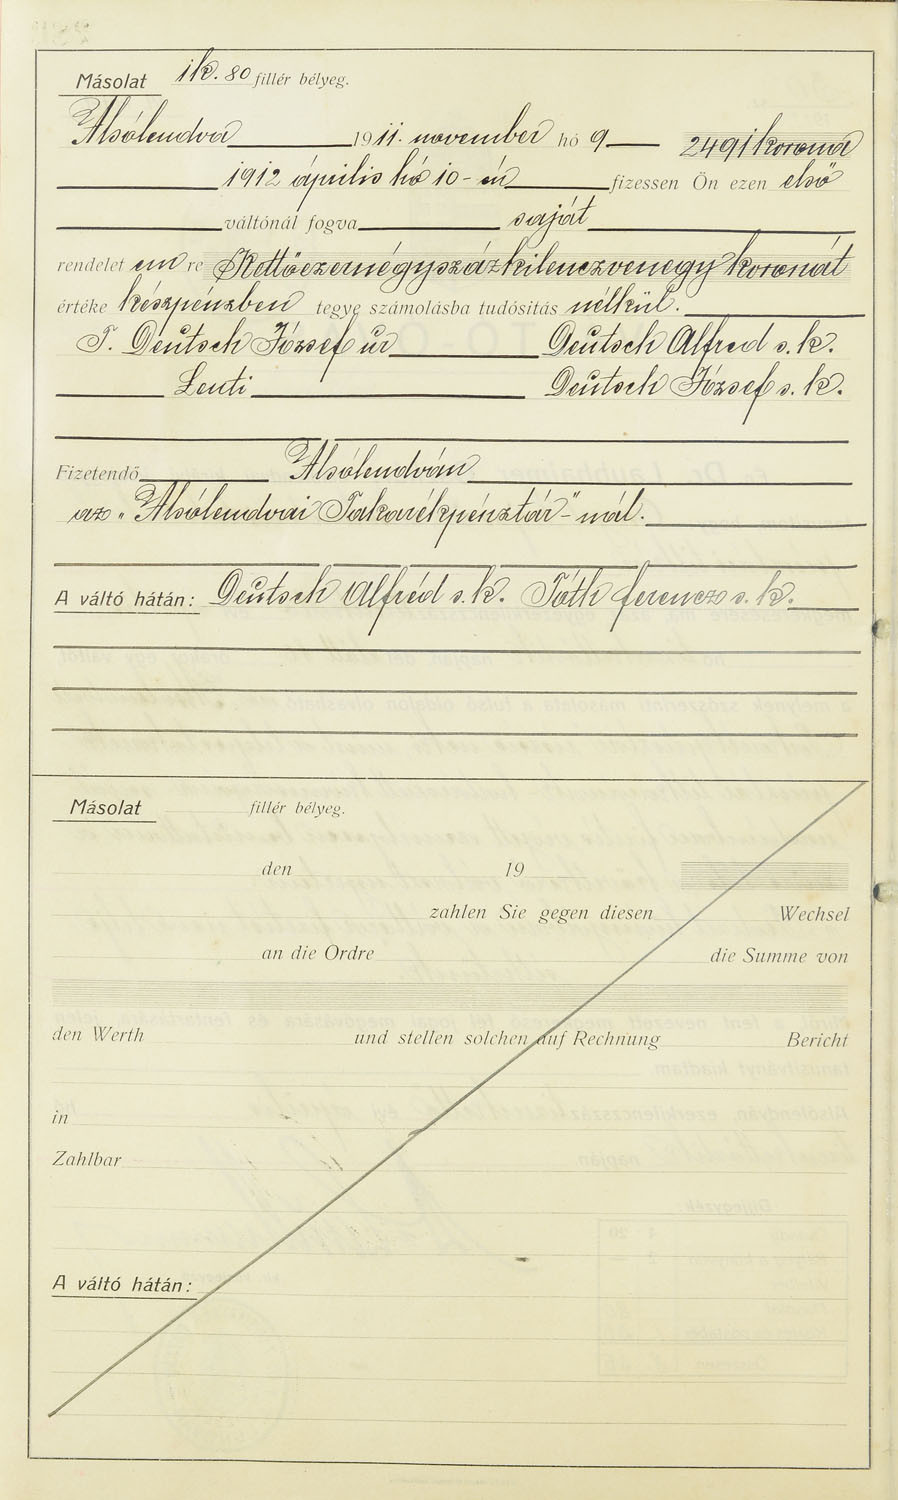 Másolat 1k. 80 fillér bélyeg.
Alsólendva 1911. november hó 9 2491 korona
1912 április hó 10-én fizessen Ön ezen első
váltónál fogva saját
rendelet em re Kettőezernégyszázkilenczvenegy koronát
értéke készpénzben tegye számolásba tudósitás nélkül.
T. Deutsch József úr Deutsch Alfred s. k.
Lenti Deutsch József s. k.
Fizetendő Alsólendván
az "Alsólendvai Takarékpénztár"-nál.
A váltó hátán: Deutsch Alfréd s. k. Tóth ferencz s. k.
Másolat fillér bélyeg.
den 19
zahlen Sie gegen diesen Wechsel
an die Ordre die Summe von
den Werth und stellen solchen auf Rechnung Bericht
in
Zahlbar
A váltó hátán: